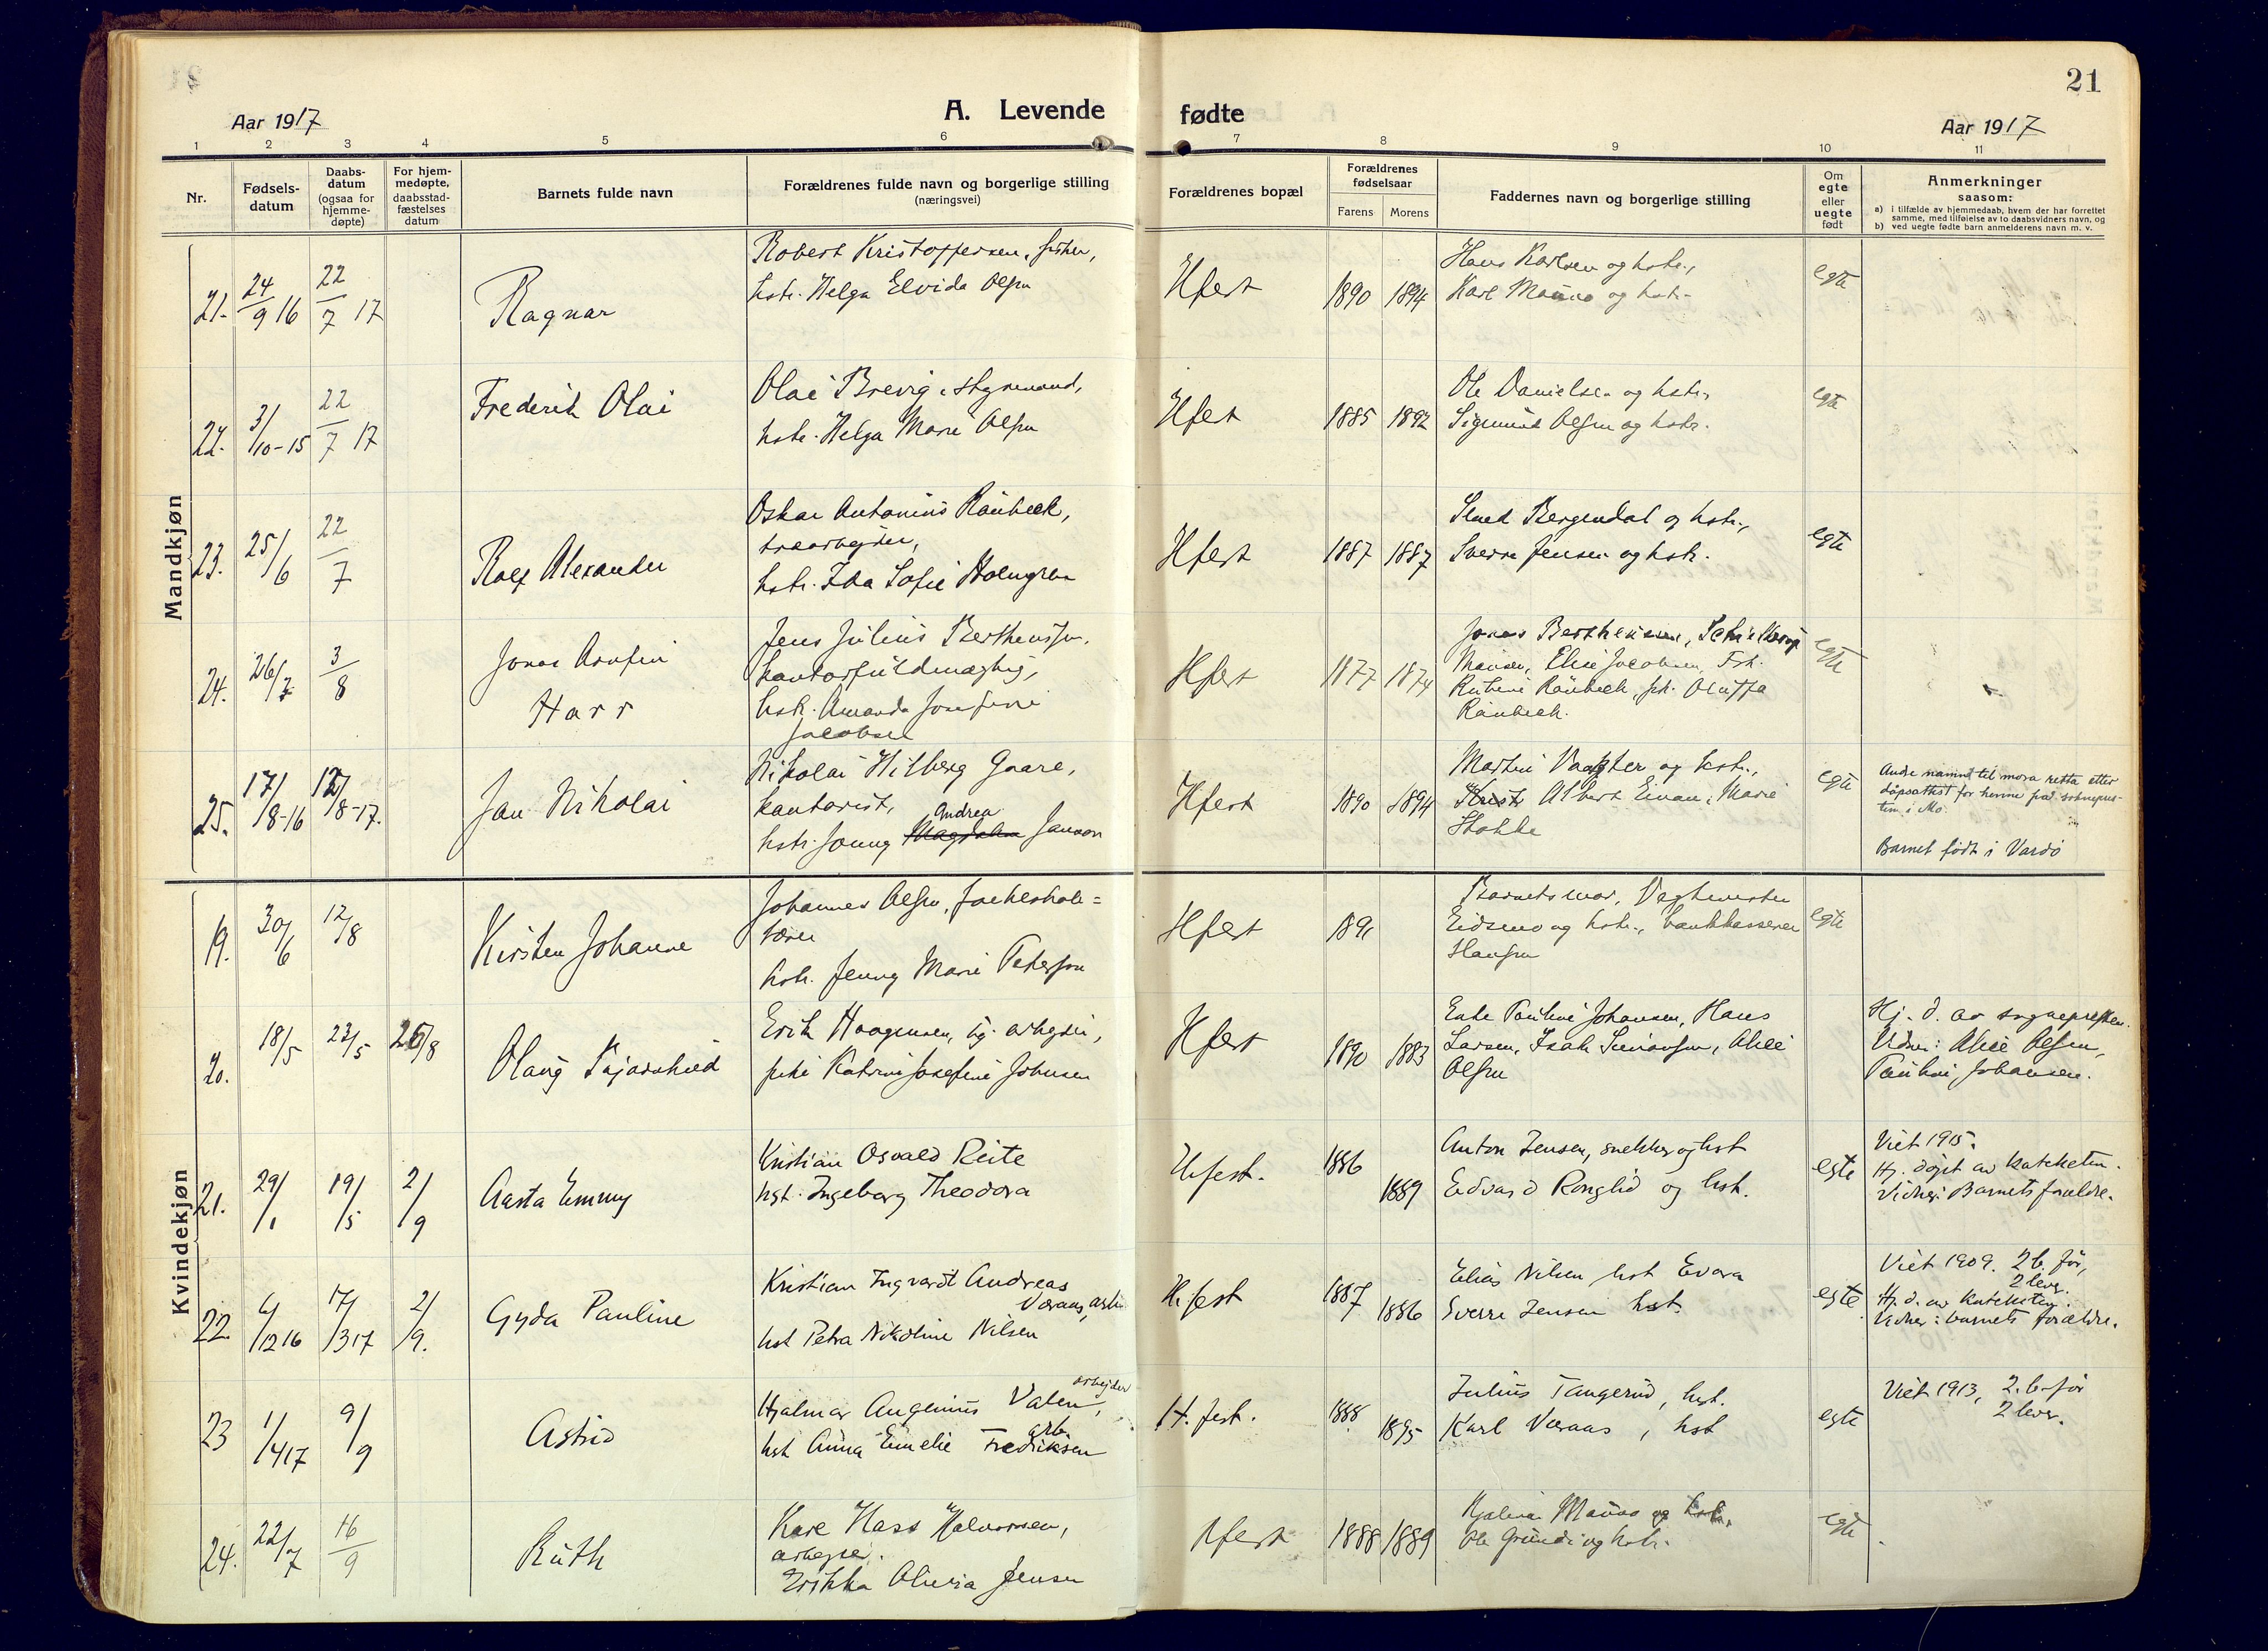 21
Aar 1917
A. Levende fødte
Aar 1917
1 2 3 4 5 6 7 8 9 10 11
Nr.
Fødsels-
datum
Daabs-
datum
(ogsaa for
hjemme-
døpte)
For hjem-
medøpte,
daabsstad-
fæstelses
datum
Barnets fulde navn
Forældrenes fulde navn og borgerlige stilling
(næringsvei)
Forældrenes bopæl
Forældrenes
fødselsaar
Farens Morens
Faddernes navn og borgerlige stilling
Om
egte
eller
uegte
født
Anmerkninger
saasom:
a) i tilfælde av hjemmedaab, hvem der har forrettet
samme, med tilføielse av to daabsvidners navn, og
b) ved uegte fødte barn anmelderens navn m. v.
Mandkjøn
21. 24/9 16 22/7 17
Ragnar
Robert Kristoffersen, fisker,
hstr. Helga Elvida Olsen
Hfest 1890 1894
Hans Karlsen og hstr.,
Karl og hstr.
egte
22. 3/10-15 22/7 17
Frederik Olai
Olai Brevig, styrmand,
hstr. Helga Marie Olsen
Hfest 1885 1892
Ole Danielsen og hstr.,
Sigmund Olsen og hstr.
egte
23. 25/6 22/7
Rolf Alexander
Oskar Antonius Raubeck,
træarbejder,
hstr. Ida Sofie Holmgren
Hfest 1887 1887
Bergendal og hstr.,
Sverre Jensen og hstr.
egte
24. 26/7 3/8
Jonas Arnfin
Harr
Jens Julius Berthensen,
kontorfuldmægtig,
hstr. Amanda Josefine
Jacobsen
Hfest 1877 1874
Jonas Berthensen,
Elise Jacobsen, Frk.
Raubeck, frk. Oluffa
Raubeck.
egte
25. 17/8-16 12/8-17.
Jan Nikolai
Nikolai Hilberg Gaare,
kontorist,
Andrea
hstr. Jenny Magdalena Janson
Hfest 1890 1894
Martin og hstr.,
Albert Einan, Marie
Stokke
egte
Andre namnet til mora retta etter
dåpsattest for henne frå soknepres-
ten i Mo.
Barnet født i Vardø
Kvindekjøn
19. 30/6 12/8
Kirsten Johanne
Johannes Olsen, folkeskole=
lærer
hstr. Jenny Marie Petersen
Hfest 1891
Barnets mor, Vegtmester
Eidsmo og hstr., bankkasserer
Hansen
egte
20. 18/5 23/5 26/8
Olaug
Erik Haagensen, arbejder,
pike Katrine Josefine Johnsen
Hfest 1890 1883
Enke Pauline Johansen, Hans
Larsen, Isak Simonsen, Alice
Olsen
Hj. d. av sognepresten.
Vidner: Alice Olsen,
Pauline Johansen.
21. 29/1 19/5 2/9
Aasta Emmy
Kristian Osvald Reite
hst. Ingeborg Theodora
H.fest. 1886 1889
Anton Jensen, snekker og hst
Edvard Ronglid og hst.
egte
Viet 1915.
Hj. døpt av kateketen.
Vidner: Barnets forældre.
22. 6/12 16 17/3 17 2/9.
Gyda Pauline
Kristian Ingvardt Andreas
Væraas, arb.
hst Petra Nikoline Nilsen
H.fest 1887 1886
Elias Nilsen, hst Evara
Sverre Jensen hst.
egte
Viet 1909. 2 b. før,
2 lever.
Hj. d. av kateketen.
Vidner: barnets forældre.
23 1/4 17 9/9
Astrid
arbejder
Hjalmar Angenius Valen,
arb.
hst Anna Emelie Fredriksen
H. fest. 1888. 1895
Julius Tangerud, hst.
Karl Væraas, hst
egte
Viet 1913, 2. b. før
2 lever.
24. 22/7 16/9
Ruth
Kare Hass Halvorsen,
arbejder.
Erikka Oluvia Jensen
Hfest 1888 1889
Hjalmar og hstr.,
Ole Grundi og hstr.
egte